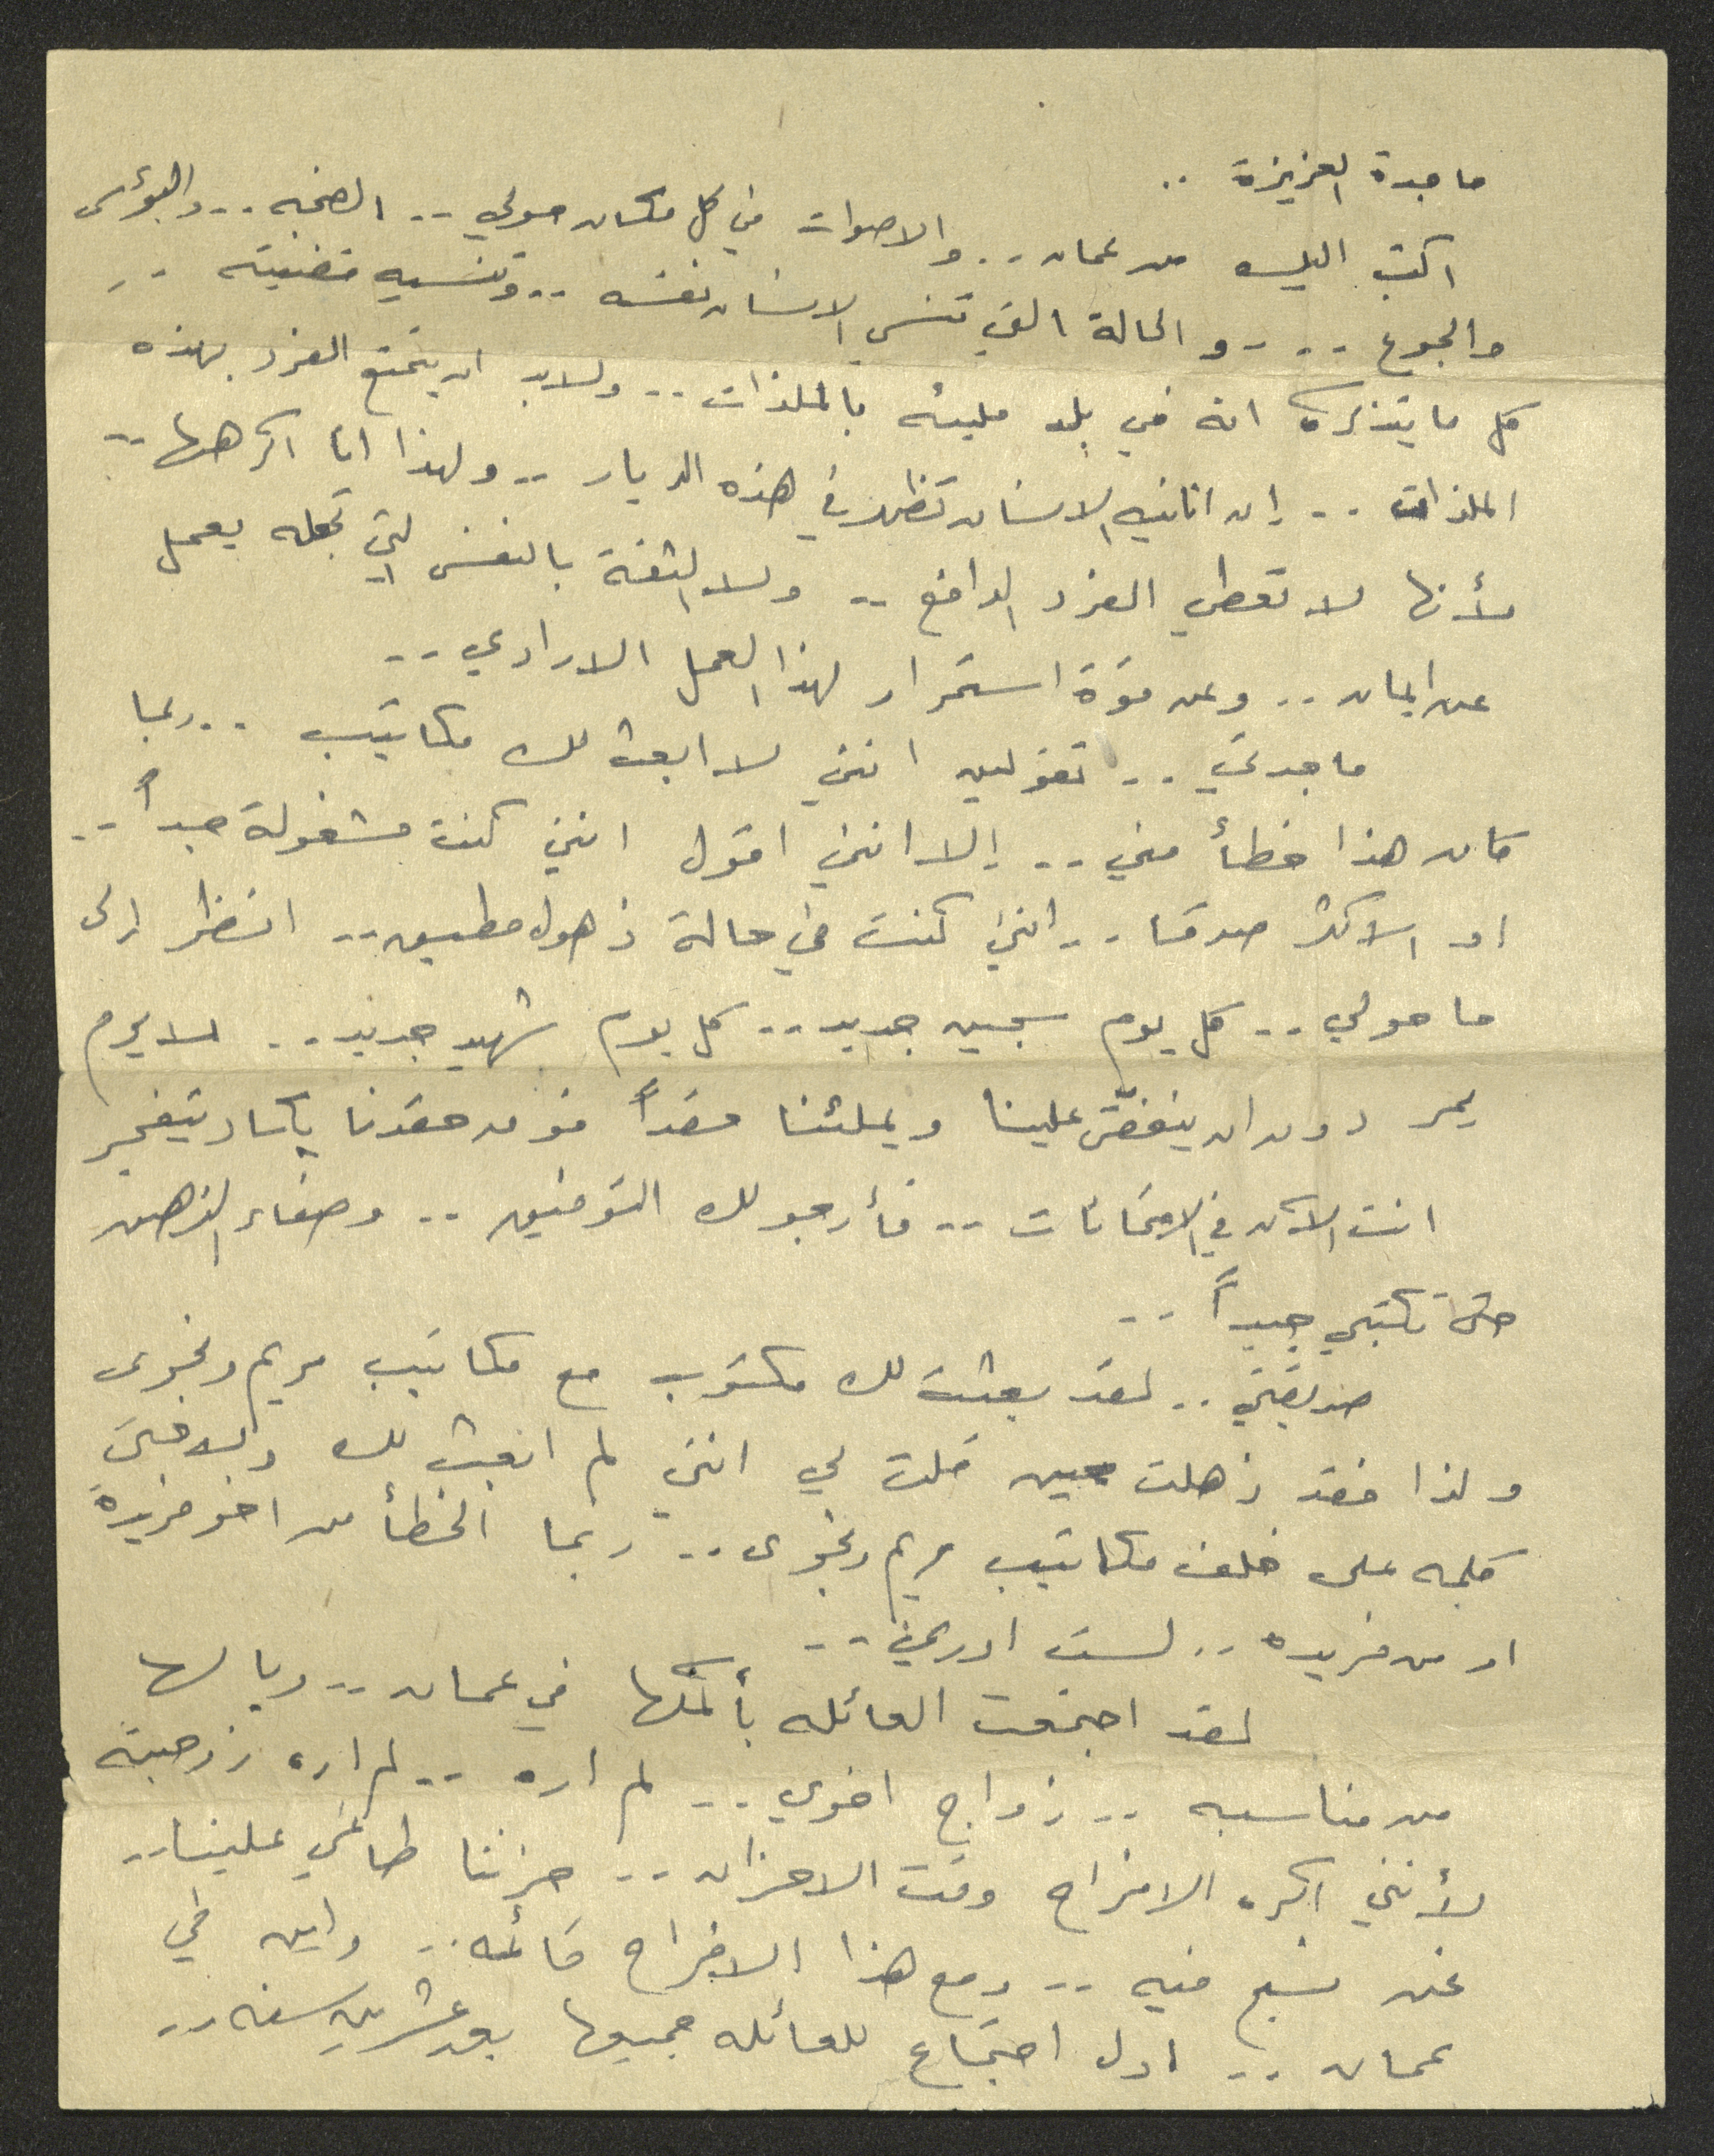 ماجدة العزيزة ..
اكتب اليك من عمان .. والاصوات في كل مكان حولي .. الضجه .. والبؤس
والجوع .. .. والحالة التي تنسي الانسان نفسه .. وتنسيه قضيته ..
كل ما يتذكره انه في بلد مليئه بالملذات .. ولابد ان يتمتع الفرد بهذه
الملذات .. إن انانيه الانسان تظهر في هذه الديار .. ولهذا انا اكرهها ..
لأنها لا تعطي الفرد الدافع .. ولا الثقة بالنفس التي تجعله يعمل
عن ايمان .. وعن قوة استمرار لهذا العمل الارادي ..
ماجدتي .. تقولين انني لا ابعث لك مكاتيب .. ربما
كان هذا خطأ مني .. إلا انني اقول انني كنت مشغولة جداً ..
او الاكثر صدقا .. انني كنت في حالة ذهول مطبق .. انظر إلى
ما حولي .. كل يوم سجين جديد .. كل يوم شهيد جديد .. لا يوم
يمر دون ان ينغّص علينا ويملئنا حقداً فوق حقدنا يكاد يتفجر
انت الآن في الامتحانات .. فأرجو لك التوفيق .. وصفاء الذهن
حتى تكتبي جيداً ..
صديقتي .. لقد بعثت لك مكتوب مع مكاتيب مريم ونجوى
ولذا فقد ذهلت حين قلت لي انني لم ابعث لك ولا حتى
كلمه على خلف مكاتيب مريم ونجوى .. ربما الخطأ من اخو فريدة
او من فريده .. لست ادري ..
لقد اجتمعت العائله بأكملها في عمان .. ويا لها
من مناسبه .. زواج اخوي .. لم اره .. لم اره زوجته
لأنني اكره الافراح وقت الاحزان .. حزننا طاغي علينا ..
نحن نسبح فيه .. ومع هذا الافراح قائمه .. واين في
عمان .. اول اجتماع للعائله جميعها بعد عشرين سنه ..